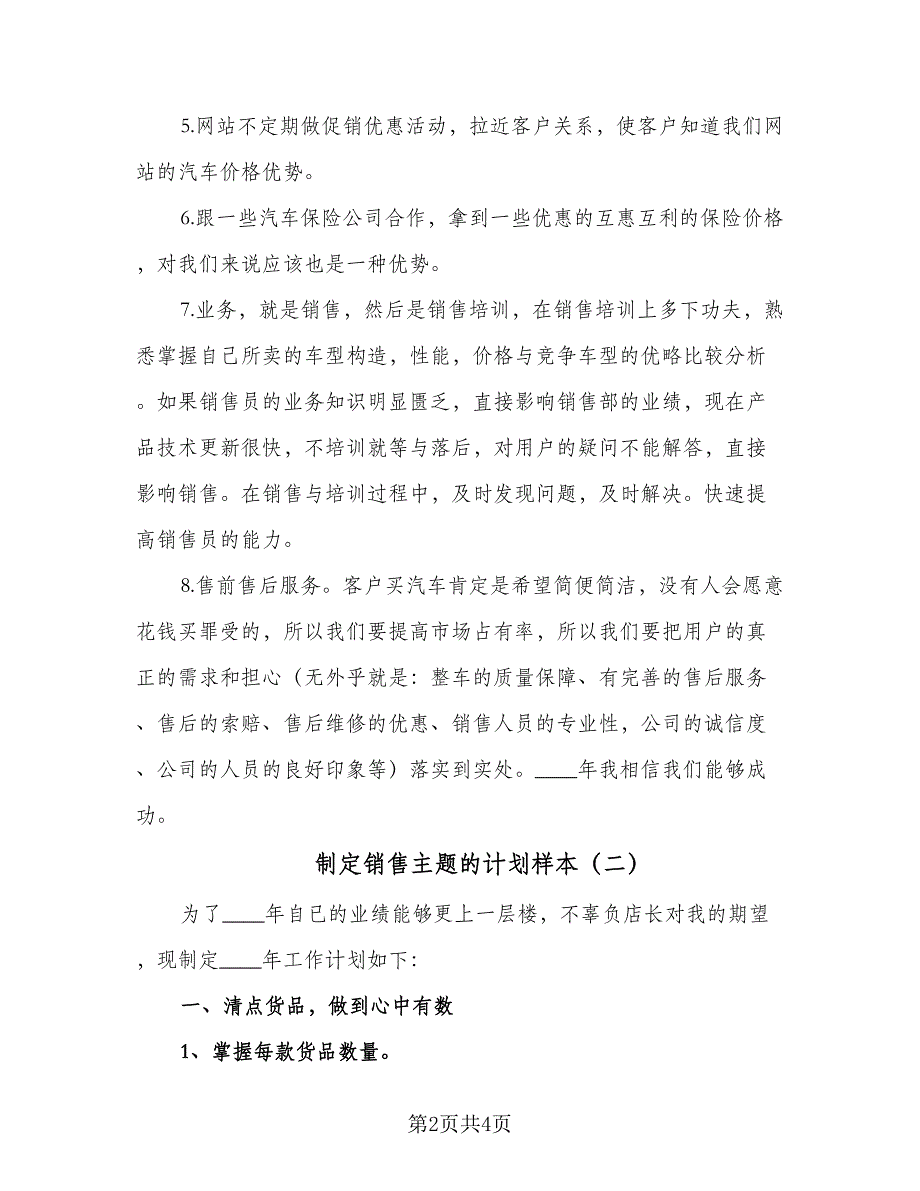 5.网站不定期做促销优惠活动，拉近客户关系，使客户知道我们网
站的汽车价格优势。
6.跟一些汽车保险公司合作，拿到一些优惠的互惠互利的保险价格
，对我们来说应该也是一种优势。
7.业务，就是销售，然后是销售培训，在销售培训上多下功夫，熟
悉掌握自己所卖的车型构造，性能，价格与竞争车型的优略比较分析
。如果销售员的业务知识明显匮乏，直接影响销售部的业绩，现在产
品技术更新很快，不培训就等与落后，对用户的疑问不能解答，直接
影响销售。在销售与培训过程中，及时发现问题，及时解决。快速提
高销售员的能力。
8.售前售后服务。客户买汽车肯定是希望简便简洁，没有人会愿意
花钱买罪受的，所以我们要提高市场占有率，所以我们要把用户的真
正的需求和担心（无外乎就是：整车的质量保障、有完善的售后服务
、售后的索赔、售后维修的优惠、销售人员的专业性，公司的诚信度
、公司的人员的良好印象等）落实到实处。____年我相信我们能够成
功。
制定销售主题的计划样本（二）
为了____年自已的业绩能够更上一层楼，不辜负店长对我的期望
，现制定____年工作计划如下：
一、清点货品，做到心中有数
1、掌握每款货品数量。
第2页共4页